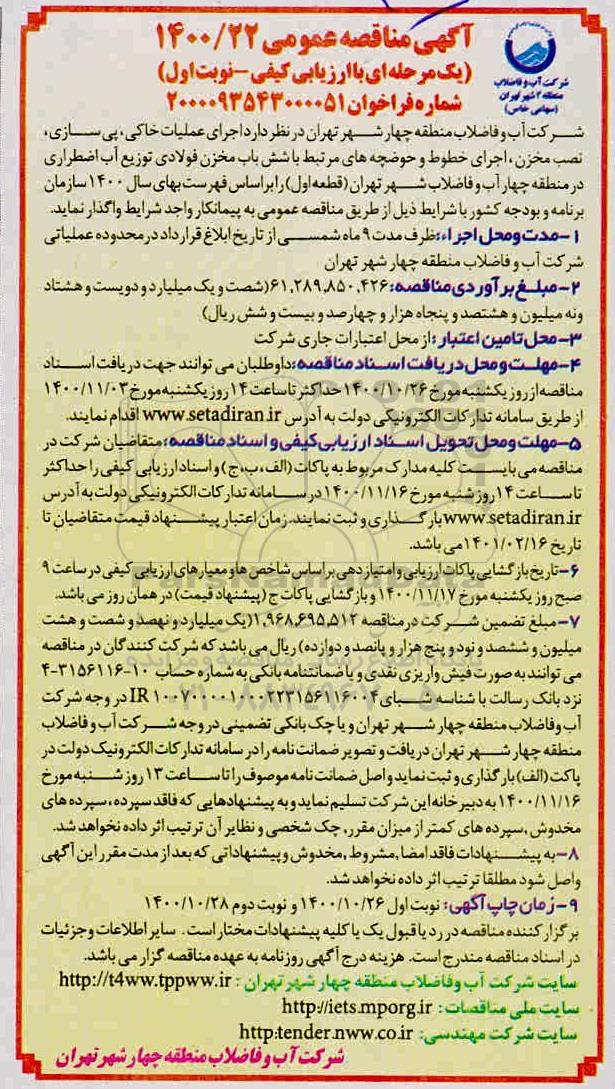 آگهی مناقصه عمومی ۱۴۰۰/۲۲
(یک مرحله ای با ارزیابی کیفی - نوبت اول)
شماره فراخوان ۲۰۰۰۰۹۳۵۴۳۰۰۰۰۵۱
شرکت آب و فاضلاب
منطقه ۴ شهر تهران
(سهامی خاص)
شرکت آب و فاضلاب منطقه چهار شهر تهران در نظر دارد اجرای عملیات خاکی، پی سازی،
نصب مخزن، اجرای خطوط و حوضچه های مرتبط با شش باب مخزن فولادی توزیع آب اضطراری
در منطقه چهار آب و فاضلاب شهر تهران (قطعه اول) را براساس فهرست بهای سال ۱۴۰۰ سازمان
برنامه و بودجه کشور با شرایط ذیل از طریق مناقصه عمومی به پیمانکار واجد شرایط واگذار نماید.
۱- مدت و محل اجراء: ظرف مدت ۹ ماه شمسی از تاریخ ابلاغ قرارداد در محدوده عملیاتی
شرکت آب و فاضلاب منطقه چهار شهر تهران
۲- مبلغ برآوردی مناقصه: ۶۱,۲۸۹,۸۵۰,۴۲۶ (شصت و یک میلیارد و دویست و هشتاد
ونه میلیون و هشتصد و پنجاه هزار و چهارصد و بیست و شش ریال)
۳- محل تامین اعتبار: از محل اعتبارات جاری شرکت
۴- مهلت و محل دریافت اسناد مناقصه: داوطلبان می توانند جهت دریافت اسناد
مناقصه از روز یکشنبه مورخ ۱۴۰۰/۱۰/۲۶ حداکثر تا ساعت ۱۴ روز یکشنبه مورخ ۱۴۰۰/۱۱/۰۳
از طریق سامانه تدارکات الکترونیکی دولت به آدرس www.setadiran.ir اقدام نمایند.
۵- مهلت و محل تحویل اسناد ارزیابی کیفی و اسناد مناقصه: متقاضیان شرکت در
مناقصه می بایست کلیه مدارک مربوط به پاکات (الف، ب، ج) و اسناد ارزیابی کیفی را حداکثر
تا ساعت ۱۴ روز شنبه مورخ ۱۴۰۰/۱۱/۱۶ در سامانه تدارکات الکترونیکی دولت به آدرس
www.setadiran.ir بارگذاری و ثبت نمایند. زمان اعتبار پیشنهاد قیمت متقاضیان تا
تاریخ ۱۴۰۱/۰۲/۱۶ می باشد.
۶- تاریخ بازگشایی پاکات ارزیابی و امتیازدهی براساس شاخص ها و معیارهای ارزیابی کیفی در ساعت ۹
صبح روز یکشنبه مورخ ۱۴۰۰/۱۱/۱۷ و بازگشایی پاکات ج (پیشنهاد قیمت) در همان روز می باشد.
۷- مبلغ تضمین شرکت در مناقصه ۱,۹۶۸,۶۹۵,۵۱۲ (یک میلیارد و نهصد و شصت و هشت
میلیون و ششصد و نود و پنج هزار و پانصد و دوازده) ریال می باشد که شرکت کنندگان در مناقصه
می توانند به صورت فیش واریزی نقدی و یا ضمانتنامه بانکی به شماره حساب ۱۰-۳۱۵۶۱۱۶-۴
نزد بانک رسالت با شناسه شبای IR ۱۰۰۷۰۰۰۰۱۰۰۰۲۲۳۱۵۶۱۱۶۰۰۴ در وجه شرکت
آب و فاضلاب منطقه چهار شهر تهران و یا چک بانکی تضمینی در وجه شرکت آب و فاضلاب
منطقه چهار شهر تهران دریافت و تصویر ضمانت نامه را در سامانه تدارکات الکترونیک دولت در
پاکت (الف) بارگذاری و ثبت نماید و اصل ضمانت نامه موصوف را تا ساعت ۱۳ روز شنبه مورخ
۱۴۰۰/۱۱/۱۶ به دبیرخانه این شرکت تسلیم نماید و به پیشنهادهایی که فاقد سپرده، سپرده های
مخدوش، سپرده های کمتر از میزان مقرر، چک شخصی و نظایر آن ترتیب اثر داده نخواهد شد.
۸- به پیشنهادات فاقد امضا، مشروط، مخدوش و پیشنهاداتی که بعد از مدت مقرر این آگهی
واصل شود مطلقا ترتیب اثر داده نخواهد شد.
۹- زمان چاپ آگهی: نوبت اول ۱۴۰۰/۱۰/۲۶ و نوبت دوم ۱۴۰۰/۱۰/۲۸
برگزار کننده مناقصه در رد یا قبول یک یا کلیه پیشنهادات مختار است. سایر اطلاعات و جزئیات
در اسناد مناقصه مندرج است. هزینه درج آگهی روزنامه به عهده مناقصه گزار می باشد.
سایت شرکت آب و فاضلاب منطقه چهار شهر تهران: http://t4ww.tppww.ir
سایت ملی مناقصات: http://iets.mporg.ir
سایت شرکت مهندسی: http:tender.nww.co.ir
شرکت آب و فاضلاب منطقه چهار شهر تهران